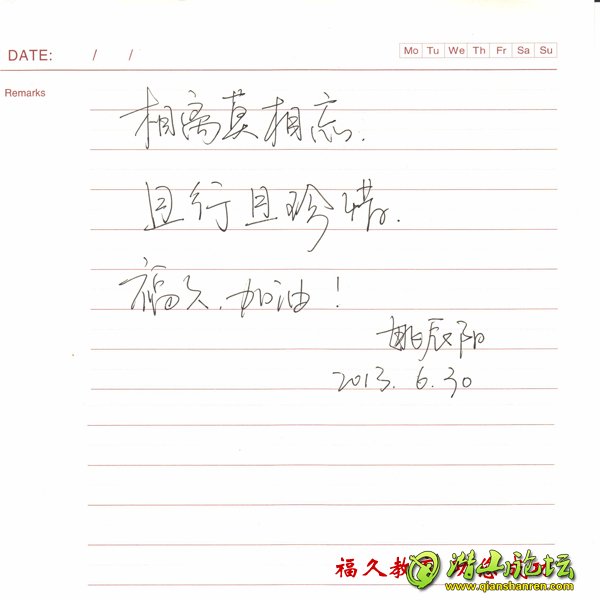 DATE: / /
Mo Tu We Th Fr Sa Su
Remarks
相离莫相忘.
且行且珍惜.
福久.加油!
辰阳
2013.6.30
福久教
潜山论坛
www.qianshanren.com